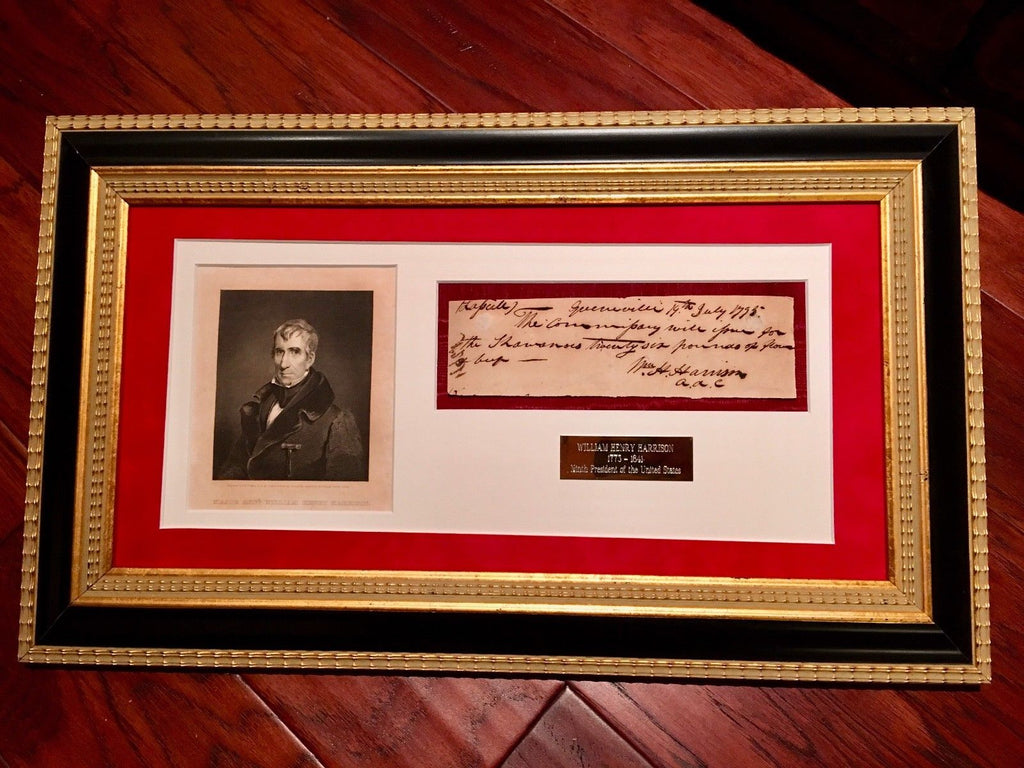 MAJOR GENL. WILLIAM HENRY HARRISON
Greenville 19th July 1795.
The Commissary will issue for
the Shawanoes twenty six pounds of
beef —
Wm. H. Harrison
a.d.C
WILLIAM HENRY HARRISON
1773 – 1841
Ninth President of the United States